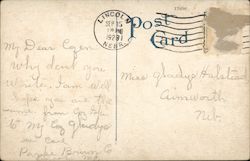 LINCOLN
SEP
1928
NEBR.
Post
Card
My Dear Cozen
Why dont you
Write. I am well
hope you are the
same from
to My Coz Gladys
Miss Gladys Halstead
Ainsworth
Neb.